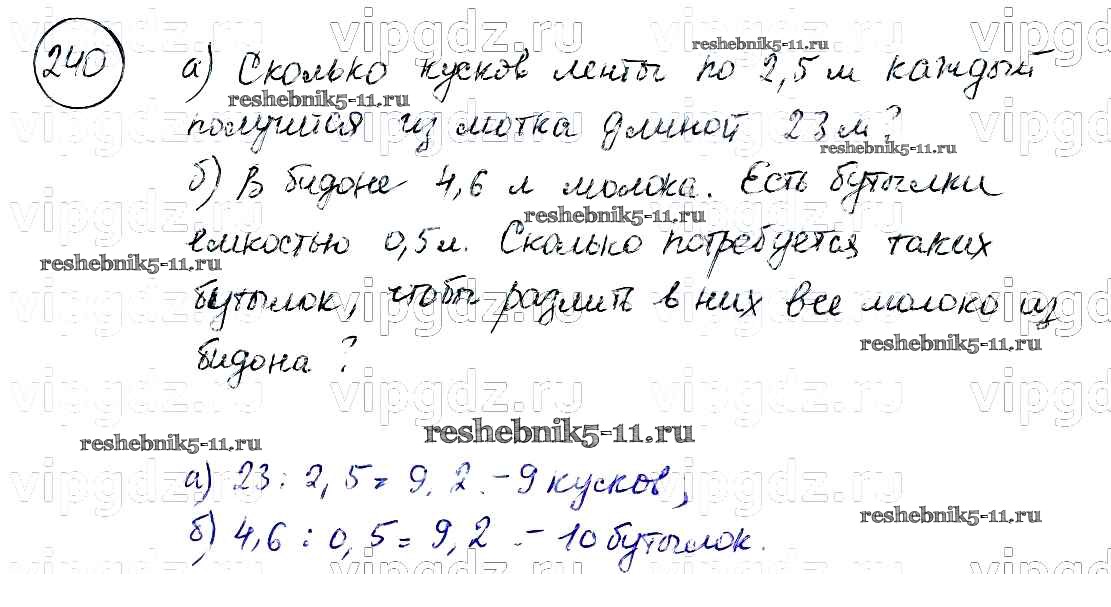 240
а) Сколько кусков ленты по 2,5 м каждый
получится из мотка длиной 23 м?
б) В бидоне 4,6 л молока. Есть бутылки
емкостью 0,5 л. Сколько потребуется таких
бутылок, чтобы разлить в них все молоко из
бидона?
а) 23 : 2,5 = 9,2 - 9 кусков;
б) 4,6 : 0,5 = 9,2 - 10 бутылок.
vipgdz.ru
reshebnik5-11.ru